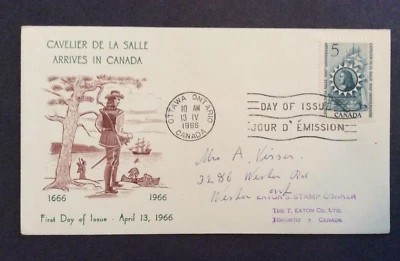 CAVELIER DE LA SALLE
ARRIVES IN CANADA
1666 1966
First Day of Issue - April 13, 1966
OTTAWA ONTARIO
10 AM
13 IV
1966
CANADA
DAY OF ISSUE
JOUR D'ÉMISSION
5
CANADA
Mrs A.
3286 Weston Rd
Weston Ont
EATON'S STAMP CORNER
THE T. EATON CO. LTD.
TORONTO CANADA